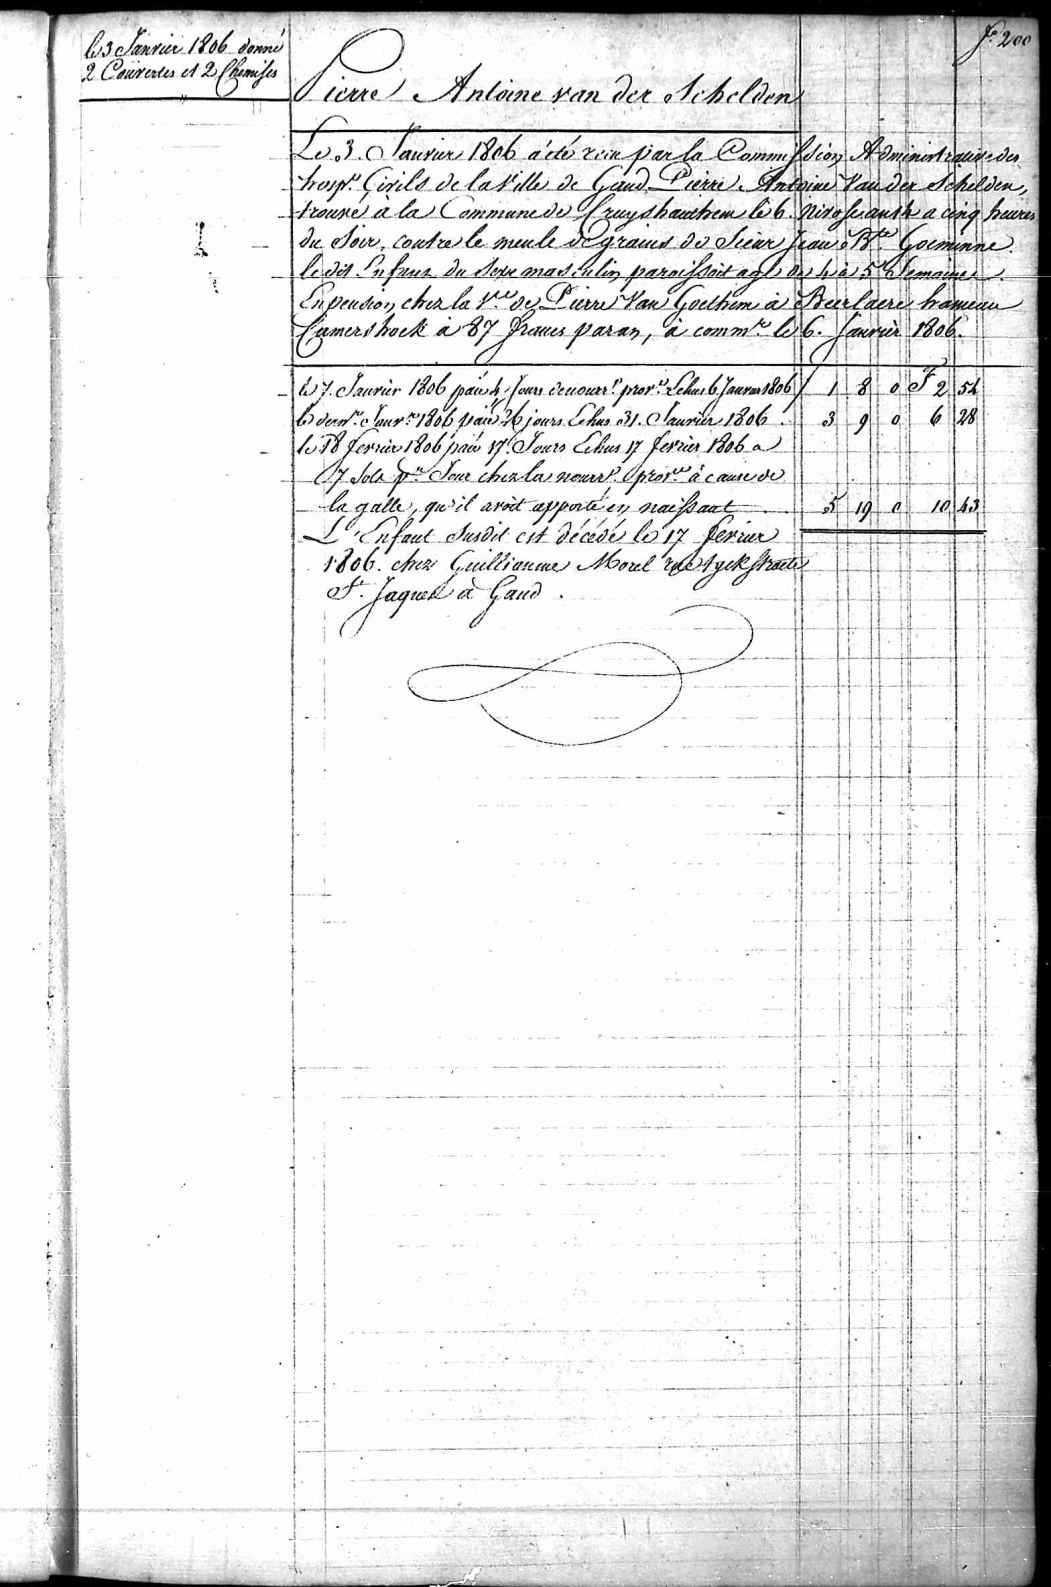 fo. 200
le 3 Janvier 1806 donné
2 Couvertes et 2 Chemises
Pierre Antoine van der Schelden
Le 3. Janvier 1806 a été reçu par la Commission Administrative des
hospes. Civils de la Ville de Gand Pierre Antoine Van der Schelden,
trouvé à la Commune de Cruyshauthem le 6. Nivose an 14 a cinq heures
du Soir, contre le meule de grains de Sieur Jean Bte. Goeminne.
le dit Enfant du Sexe masculin paroissoit agé de 4 à 5 Semaines.
En pension chez la Ve. de Pierre Van Goethem à Beerlaere hameau
à 87 francs par an, à commr. le 6. Janvier 1806.
le 7. Janvier 1806 paié 4. Jours de nourre. prove. Echus 6 Janvier 1806 / 1 8 0 F 2 54
le derne. Janvr. 1806 paié 26 jours Echus 31. Janvier 1806. 3 9 0 6 28
le 18 fevrier 1806 paié 17. Jours Echus 17 fevrier 1806 a
7 Sols pr. Jour chez la nourre. prove. à cause de
la galle, qu'il avoit apporté en naissant 5 19 0 10 43
L'Enfant Susdit est décédé le 17 fevrier
1806. chez Guilliaume Morel rue
St. Jaques à Gand.